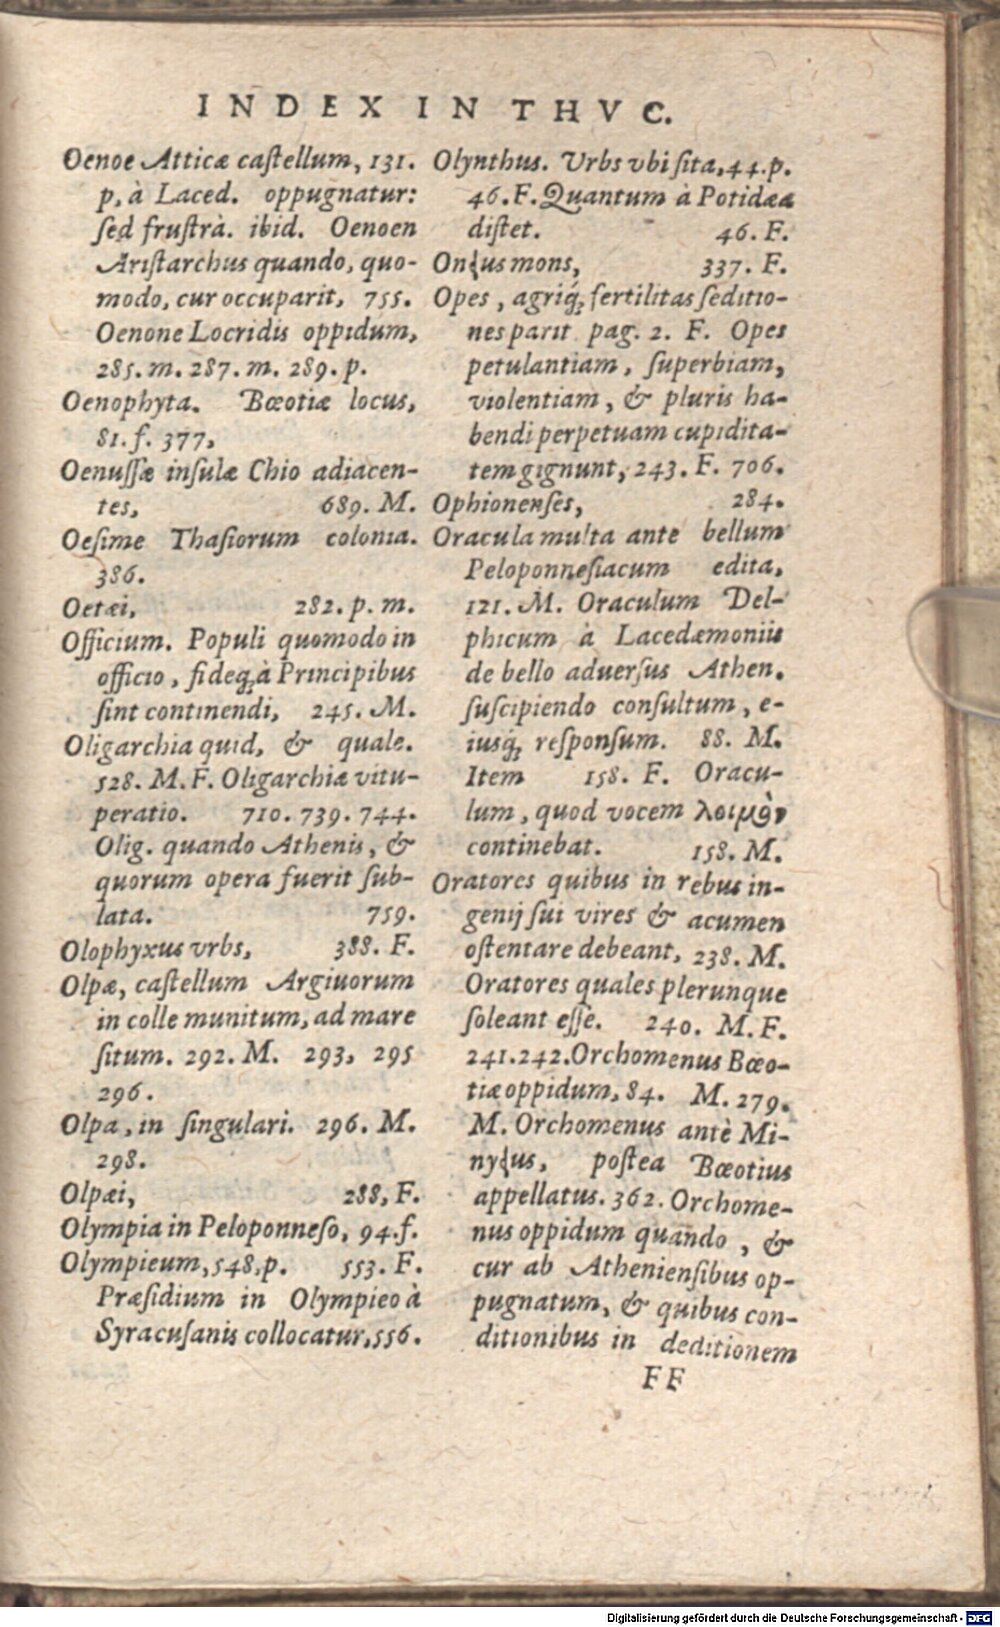 INDEX IN THVC.
Oenoe Atticæ castellum, 131.
p, à Laced. oppugnatur:
sed frustrà. ibid. Oenoen
Aristarchus quando, quo-
modo, cur occuparit, 755.
Oenone Locridis oppidum,
285. m. 287. m. 289. p.
Oenophyta. Bœotiæ locus,
81. f. 377,
Oenussæ insulæ Chio adiacen-
tes, 689. M.
Oesime Thasiorum colonia.
386.
Oetæi, 282. p. m.
Officium. Populi quomodo in
officio, fideq; à Principibus
sint continendi, 245. M.
Oligarchia quid, & quale.
528. M. F. Oligarchiæ vitu-
peratio. 710. 739. 744.
Olig. quando Athenis, &
quorum opera fuerit sub-
lata. 759.
Olophyxus vrbs, 388. F.
Olpæ, castellum Argiuorum
in colle munitum, ad mare
situm. 292. M. 293, 295
296.
Olpa, in singulari. 296. M.
298.
Olpæi, 288, F.
Olympia in Peloponneso, 94. f.
Olympieum, 548, p. 553. F.
Præsidium in Olympieo à
Syracusanis collocatur, 556.
Olynthus. Vrbs vbi sita, 44. p.
46. F. Quantum à Potidæa
distet. 46. F.
On{us mons, 337. F.
Opes, agriq; fertilitas seditio-
nes parit pag. 2. F. Opes
petulantiam, superbiam,
violentiam, & pluris ha-
bendi perpetuam cupidita-
tem gignunt, 243. F. 706.
Ophionenses, 284.
Oracula multa ante bellum
Peloponnesiacum edita,
121. M. Oraculum Del-
phicum à Lacedæmoniis
de bello aduersus Athen.
suscipiendo consultum, e-
iusq; responsum. 88. M.
Item 158. F. Oracu-
lum, quod vocem λοιμὸν
continebat. 158. M.
Oratores quibus in rebus in-
genij sui vires & acumen
ostentare debeant, 238. M.
Oratores quales plerunque
soleant esse. 240. M. F.
241. 242. Orchomenus Bœo-
tiæ oppidum, 84. M. 279.
M. Orchomenus antè Mi-
ny{us, postea Bœotius
appellatus. 362. Orchome-
nus oppidum quando, &
cur ab Atheniensibus op-
pugnatum, & quibus con-
ditionibus in deditionem
FF
Digitalisierung gefördert durch die Deutsche Forschungsgemeinschaft - DFG